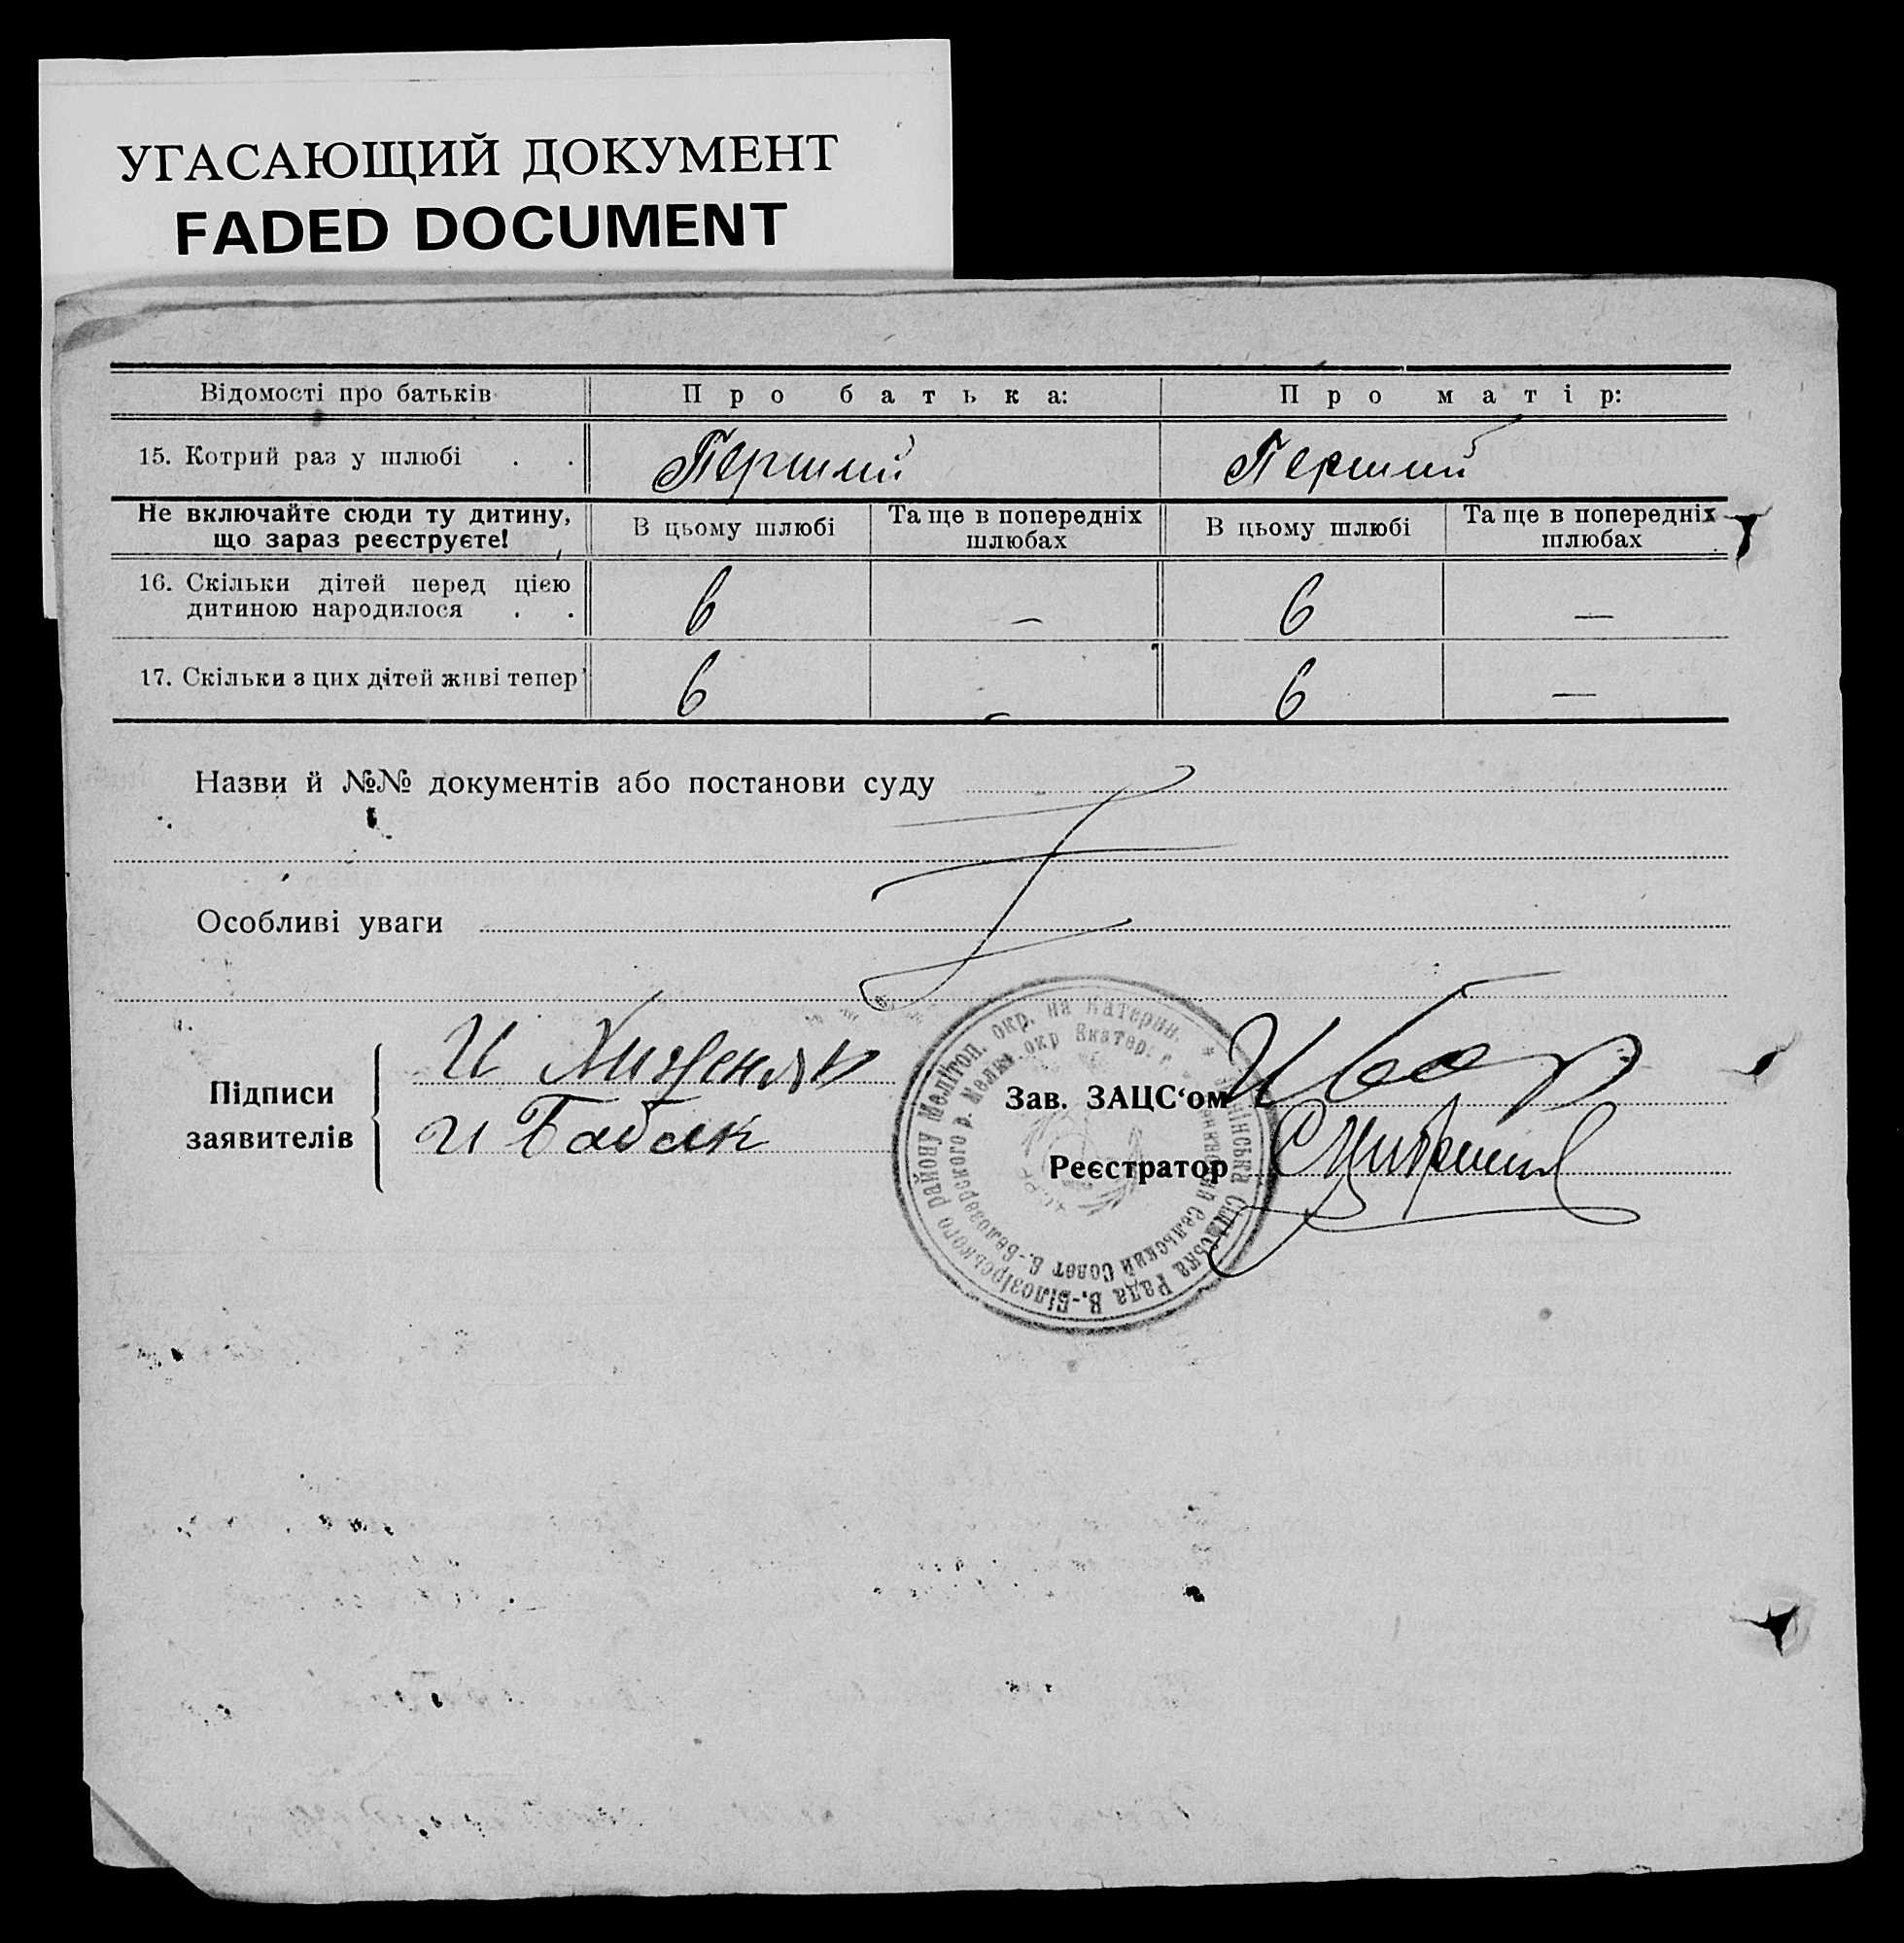 УГАСАЮЩИЙ ДОКУМЕНТ
FADED DOCUMENT
Відомості про батьків
Про батька:
Про матір:
15. Котрий раз у шлюбі . .
Перший
Перший
Не включайте сюди ту дитину,
що зараз реєструєте!
В цьому шлюбі
Та ще в попередніх
шлюбах
В цьому шлюбі
Та ще в попередніх
шлюбах
16. Скільки дітей перед цією
дитиною народилося . .
6
—
6
—
17. Скільки з цих дітей живі тепер
6
—
6
—
Назви й №№ документів або постанови суду
Особливі уваги
Підписи
заявителів
И
И Бабак
Зав. ЗАЦС‘ом
Реєстратор
Сільська Рада В.-Білозірського району Мелітоп. окр. на Катерин.
Сельский Совет В.-Белозерского р. Мелит. окр Екатер. г.